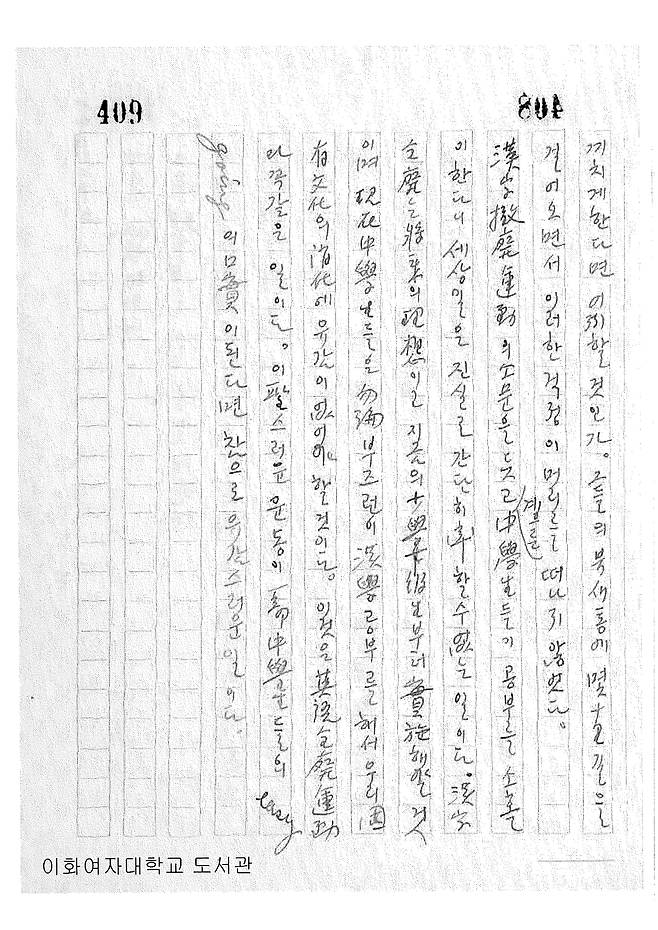 409
408
끼치게한다면 어찌할것인가。 그들의 북새통에 몇十里길을
걸어오면서 이러한 걱정이 머리를 떠나지 않았다。
漢字撤廢運動의 소문을 듣고 中學生들이 공부를 소홀
겔를
이한다니 세상일은 진실로 간단히 할수없는 일이다。 漢字
全廢는 將來의 理想이고 지금의 부터 實施해야할 것
이며 現在中學生들은 勿論 부즈런이 漢學공부를 해서 우리 國
有文化의 消化에 유감이 없어야 할것이다。 이것은 英語全廢運動
과 꼭같은 일이다。 이 스러운 운동이 中學生들의 easy
going 의 口實이된다면 참으로 유감스러운 일이다。
이화여자대학교 도서관